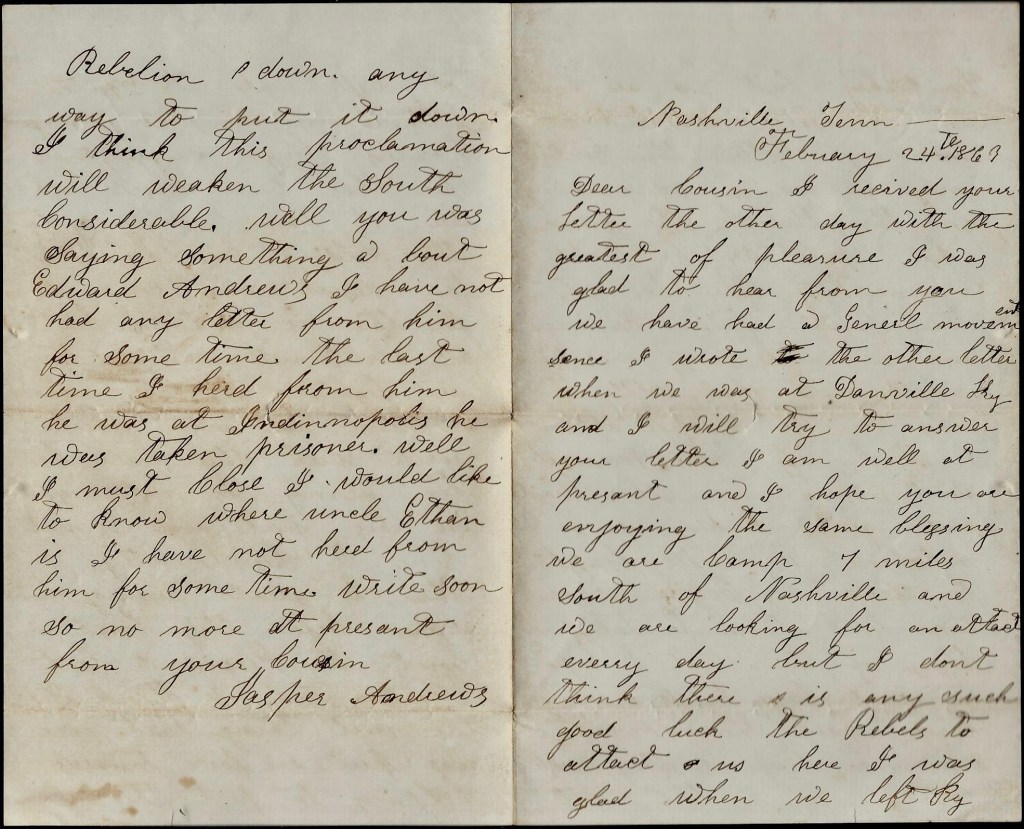 Nashville Tenn
Febuary 24th. 1863
Dear Cousin I recived your
letter the other day with the
greatest of plearsure I was
glad to hear from you
we have had a Generl movement
sence I wrote the other letter
when we was at Danville Ky
and I will try to answer
your letter I am well at
presant and I hope you are
enjoying the same blessing
we are Camp 7 miles
south of Nashville and
we are looking for an attact
everry day but I dont
think there is any such
good luck the Rebels to
attact us here I was
glad when we left Ky
Rebelion down. any
way to put it down.
I think this proclamation
will weaken the South
Considerable. well you was
Saying something a bout
Edward Andrews I have not
had any letter from him
for some time the last
time I herd from him
he was at Indinnopolis he
was taken prisoner. well
I must Close I would like
to know where uncle Ethan
is I have not herd from
him for some time write soon
so no more at presant
from your Cousin
Jasper Andrews